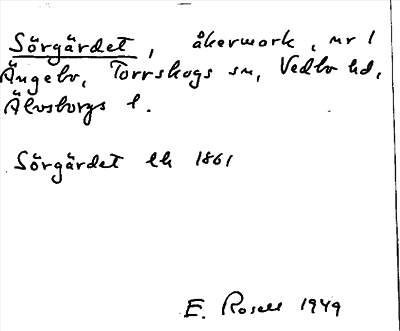 Sörgärdet, åkermark, nr 1
Ängebo, Torrskogs sn, Vedbo hd,
Älvsborgs l.
Sörgärdet lk 1861
E. Rosell 1949